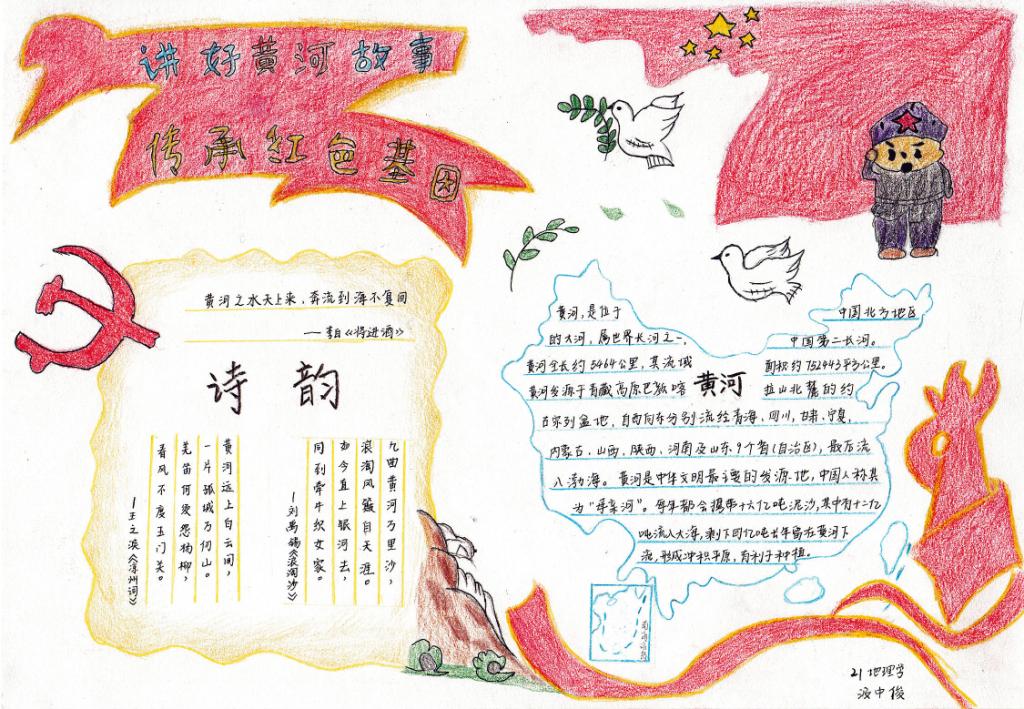 讲好黄河故事
传承红色基因
黄河之水天上来，奔流到海不复回
—李白《将进酒》
诗 韵
九曲黄河万里沙，
浪淘风簸自天涯。
如今直上银河去，
同到牵牛织女家。
—刘禹锡《浪淘沙》
黄河远上白云间，
一片孤城万仞山。
羌笛何须怨杨柳，
春风不度玉门关。
—王之涣《凉州词》
黄河，是位于 中国北方地区
的大河，属世界长河之一， 中国第二长河。
黄河全长约5464公里，其流域 面积约752443平方公里。
黄河
黄河发源于青藏高原巴颜喀 拉山北麓的约
古宗列盆地，自西向东分别流经青海、四川、甘肃、宁夏、
内蒙古、山西、陕西、河南及山东9个省(自治区)，最后流
入渤海。黄河是中华文明最主要的发源地，中国人称其
为“母亲河”。每年都会携带十六亿吨泥沙，其中有十二亿
吨流入大海，剩下四亿吨长年留在黄河下
流，形成冲积平原，有利于种植。
21地理学